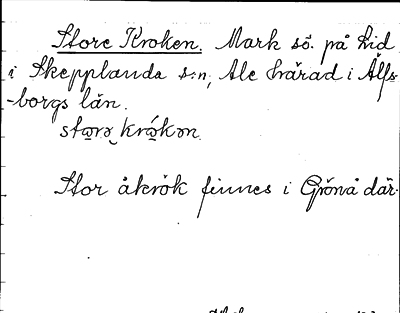 Store Kroken. Mark sö. på hid
i Skepplanda s:n, Ale härad i Älfs-
-borgs län.
Stor åkrök finnes i Grönå där-